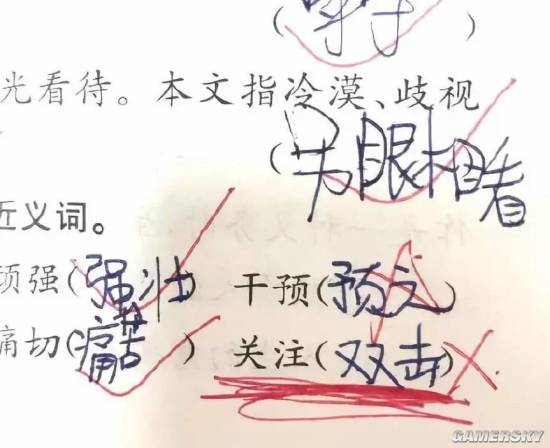 (
光看待。本文指冷漠、歧视
(另眼相看
近义词。
顽强(强壮) 干预(预)
痛切(痛苦) 关注(双击)
GAMERSKY